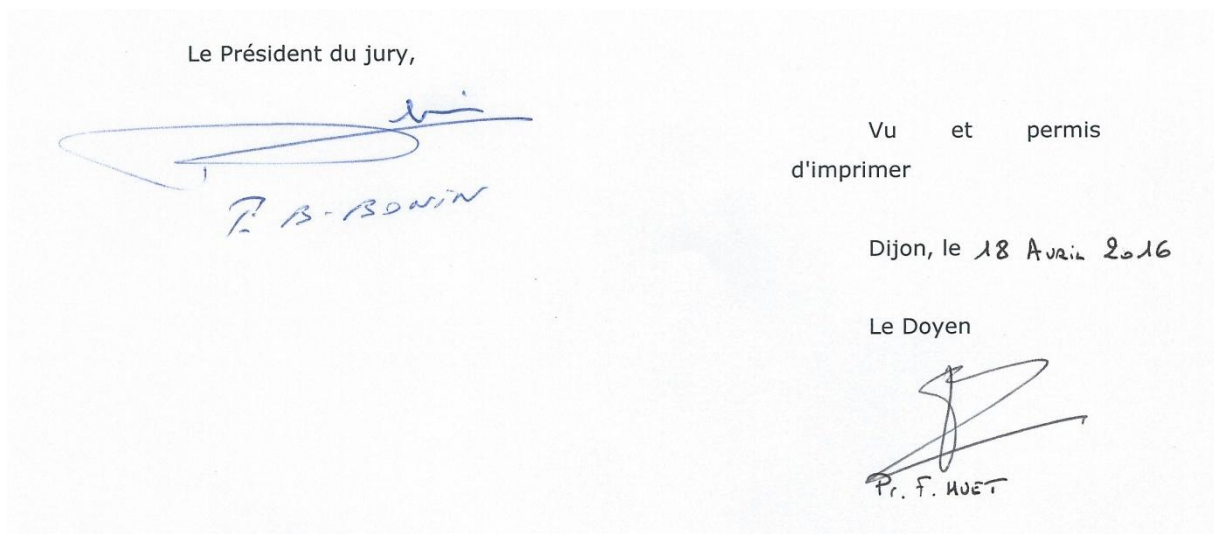 Le Président du jury,
B-BONIN
Vu et permis
d'imprimer
Dijon, le 18 Avril 2016
Le Doyen
Pr. F. HUET